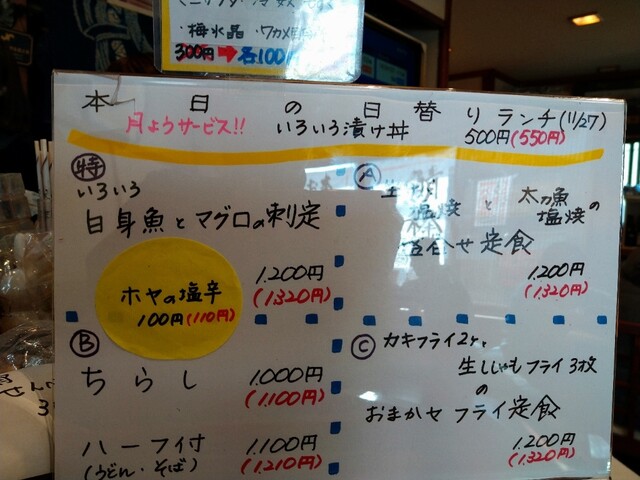 ・梅水晶
300円➡各100
本日の日替りランチ(11/27)
月ようサービス!! いろいろ漬け丼 500円(550円)
特
いろいろ
白身魚とマグロの刺定
1.200円
(1.320円)
ホヤの塩辛
100円(110円)
A
塩焼と太刀魚
塩焼の
盛合せ定食
1.200円
(1.320円)
B
ちらし 1.000円
(1.100円)
ハーフ付 1.100円
(うどん・そば) (1.210円)
C
カキフライ2ケ、
生ししゃもフライ3枚
の
おまかせフライ定食
1.200円
(1.320円)